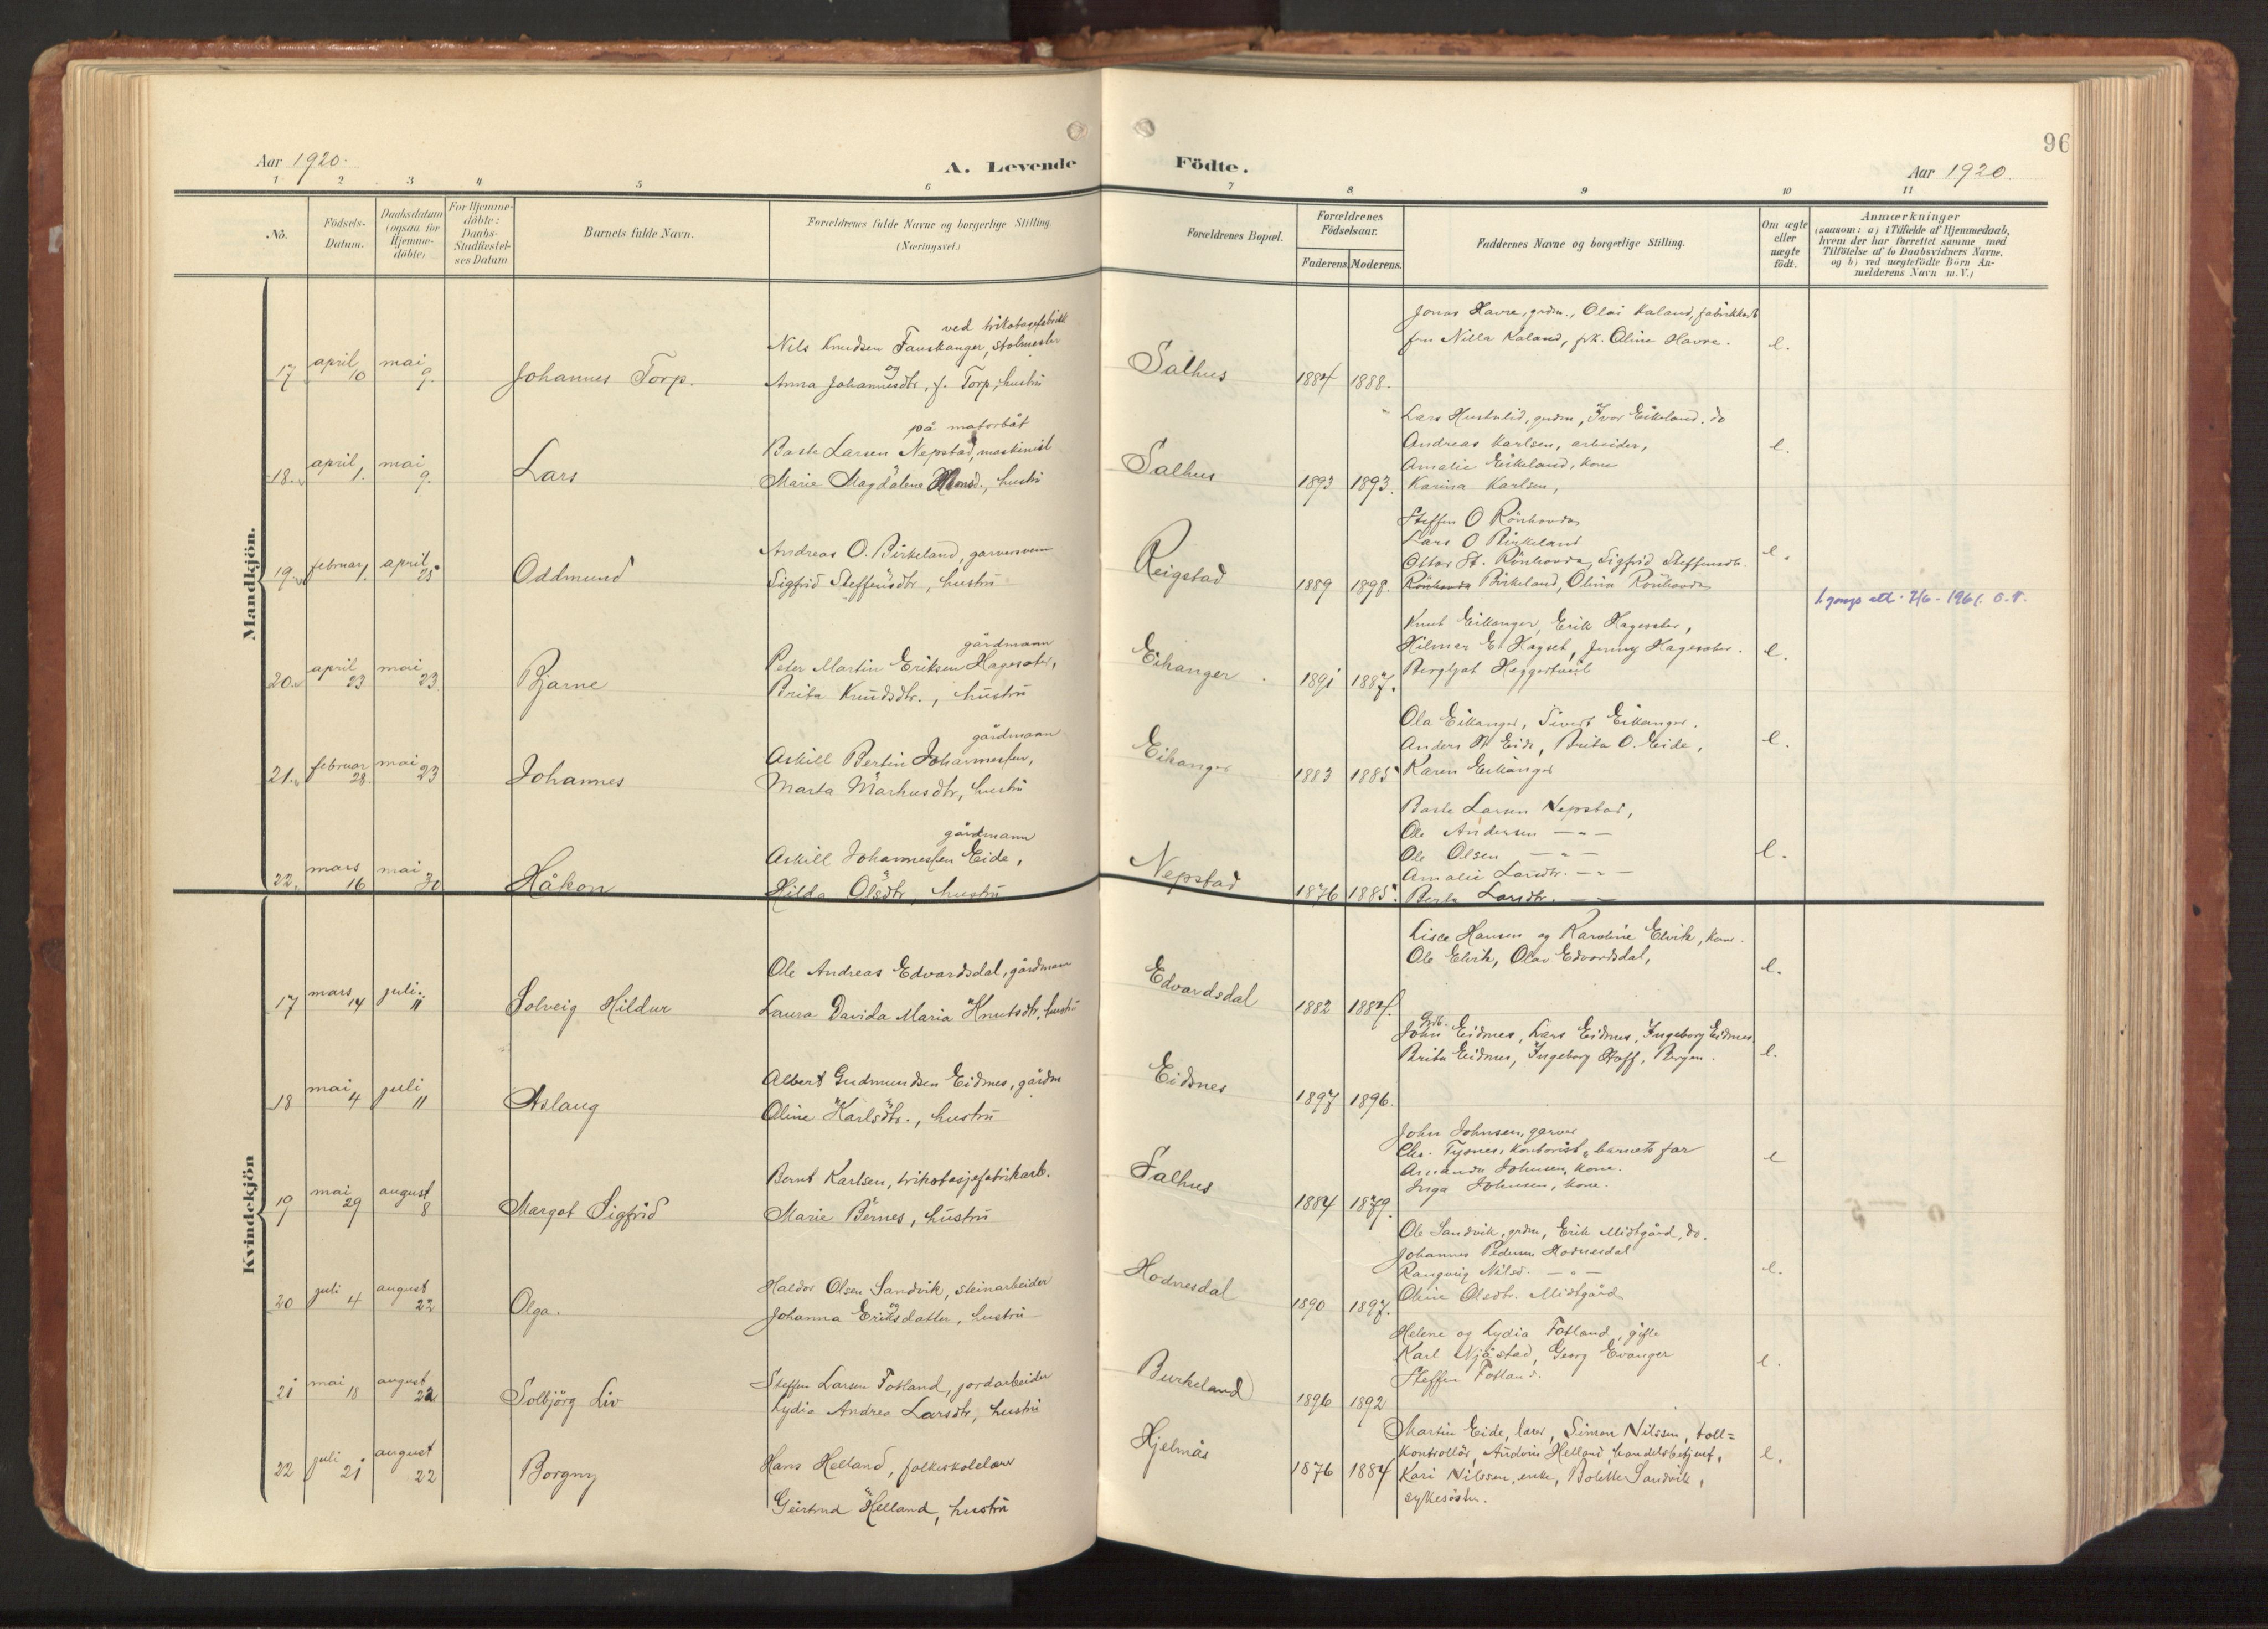 96
Aar 1920.
A. Levende Födte.
Aar 1920
1 2 3 4 5 6 7 8 9 10 11
No.
Födsels-Datum.
Daabsdatum (ogsaa for Hjemme-döbte)
For Hjemme-döbte: Daabs-Stadfæstel-ses Datum
Barnets fulde Navn.
Forældrenes fulde Navne og borgerlige Stilling. (Næringsvei.)
Forældrenes Bopæl.
Forældrenes Födselsaar.
Faderens. Moderens.
Faddernes Navne og borgerlige Stilling.
Om ægte eller uægte födt.
Anmærkninger
(saasom: a) i Tilfælde af Hjemmedaab,
hvem der har forrettet samme med
Tilföielse af to Daabsvidners Navne,
og b) ved uægtefödte Börn An-
melderens Navn m. V.)
Mandkjön.
17 april 10 mai 9. Johannes Torp.
ved trikotagefabrikk
Nils Knudsen Fauskanger, stolmester
og
Anna Johannesdtr, f. Torp, hustru
Salhus 1884 1888.
Jonas Havre, grdm., Olai Kaland, fabrikkarb
fru Nilla Kaland, frk. Oline Havre. e.
18. april 1. mai 9. Lars
på motorbåt
Baste Larsen Nepstad, maskinist
Marie Magdalene , hustru
Salhus 1893 1893.
Lars Hustulid, grdm, Ivor Eikeland, do
Andreas Karlsen, arbeider,
Amalie Eikeland, kone
Karina Karlsen, e.
19. februar 1. april 25 Oddmund
Andreas O. Birkeland, garversvenn
Sigfrid Steffensdtr, hustru
Reigstad 1889 1898.
Steffen O Rönhovda
Lars O Birkeland
Ottar St. Rönhovda, Sigfrid Steffensdtr.
Rönhovda Birkeland, Olina Rönhovda e.
1. gangs att. 7/6 - 1961. O.T.
20. april 23 mai 23 Bjarne
gårdmann
Peter Martin Eriksen Hagesæter,
Brita Knudsdtr., hustru
Eikanger. 1891 1887.
Knut Eikanger, Erik Hagesæter,
Hilmar E Hagset, Jenny Hagesæter.
Bergljot Heggertveit e.
21. februar 28. mai 23 Johannes
gårdmann
Askill Bertin Johannessen,
Marta Markusdtr, hustru
Eikanger 1883 1885
Ola Eikanger, Sivert Eikanger.
Anders N Eide, Brita O. Eide,
Karen Eikanger e.
22. mars 16 mai 30 Håkon
gårdmann
Askill Johannessen Eide,
Hilda Olsdtr, hustru
Nepstad 1876 1885.
Baste Larsen Nepstad,
Ole Andersen — " —
Ole Olsen — " —
Amalie Larsdtr. — " —
Berta Larsdtr. — " — e.
Kvindekjön
17 mars 14 juli. 11 Solveig Hildur
Ole Andreas Edvardsdal, gårdmann
Laura Davida Maria Knutsdtr, hustru
Edvardsdal 1882 1884.
Lisce Hansen og Karoline Elvik, kone.
Ole Elvik, Olav Edvardsdal, e.
18 mai 4 juli 11 Aslaug
Albert Gudmundsen Eidsnes, gårdm
Oline Karlsdtr., hustru
Eidsnes 1897 1896.
Grdb.
John Eidsnes, Lars Eidsnes, Ingeborg Eidsnes
Brita Eidsnes, Ingeborg Stoff, Bergen. e.
19 mai 29 august 8 Margot Sigfrid
Bernt Karlsen, trikotasjefabrikarb.
Marie Bernes, hustru
Salhus 1884 1879.
John Johnsen, garver
Chr. Tysnes, kontorist, barnets far
Amanda Johnsen, kone.
Inga Johnsen, kone. e
20 juli 4 august 22 Olga.
Haldor Olsen Sandvik, steinarbeider
Johanna Eriksdatter, hustru
Hodnesdal 1890 1897.
Ole Sandvik, grdm, Erik Midtgård, do.
Johannes Pedersen Hodnesdal
Rangveig Nilsd. — " —
Oline Olsdtr. Midtgård e.
21 mai 18 august 22 Solbjörg Liv
Steffen Larsen Fotland, jordarbeider
Lydia Andrea Larsdtr, hustru
Burkeland 1896 1892
Helene og Lydia Fotland, gifte
Karl Njåstad, Georg Evanger
Steffen Fotland. e.
22 juli 21 august 22 Borgny
Hans Helland, folkeskolelærer
Geirtrud Helland, hustru
Hjelmås 1876 1884
Martin Eide, lærer, Simon Nilssen, toll=
kontrollör, Audvin Helland, handelsbetjent,
Kari Nilssen, enke, Bolette Sandvik,
sykesöster. e.